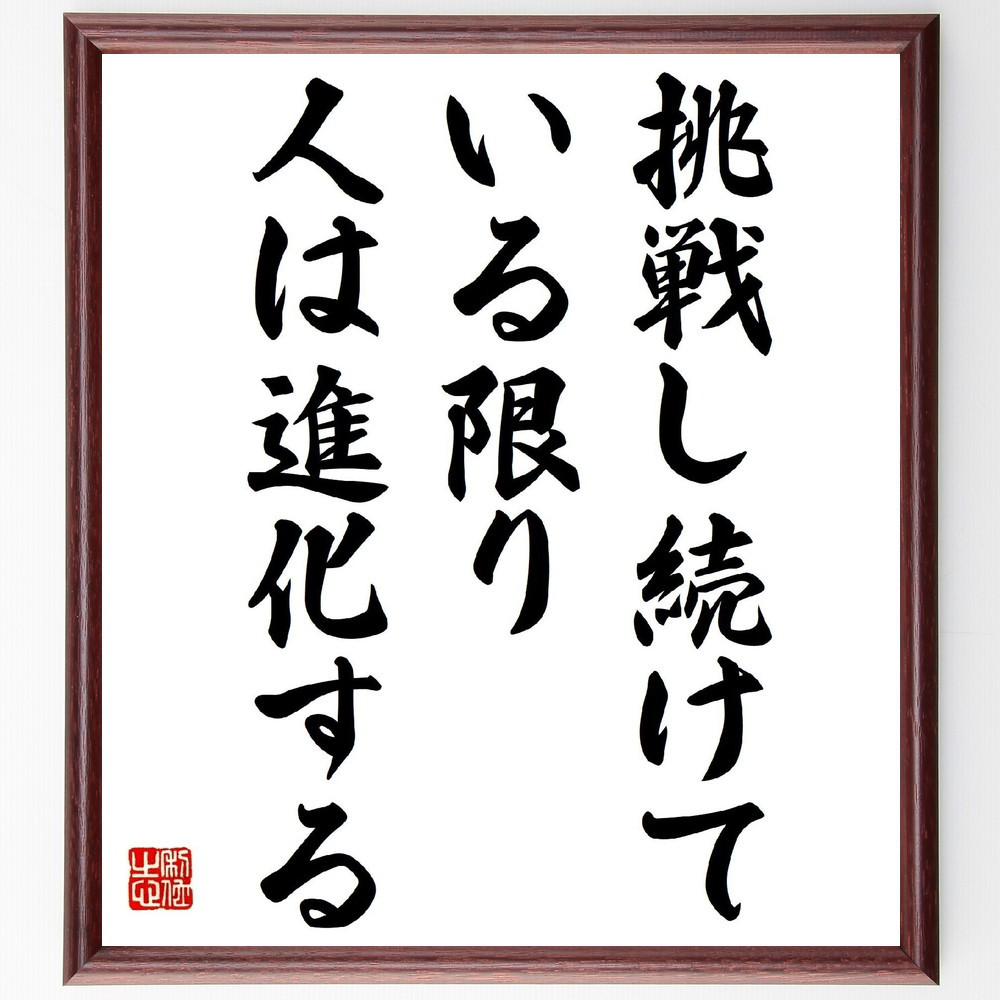 挑戦し続けて
いる限り
人は進化する